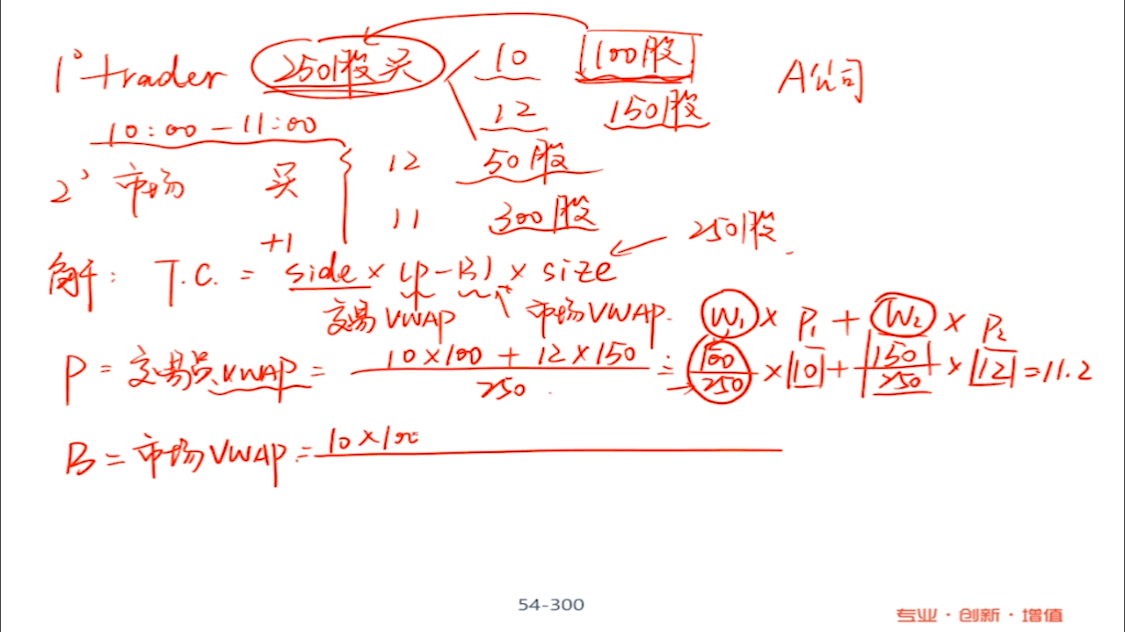 1° trader 250股买 10 100股 A公司
12 150股
10:00 - 11:00
2° 市场 买 12 50股
11 300股
250股
+1
解: T.C. = side × (P - B) × size
交易VWAP 市场VWAP. W₁ × P₁ + W₂ × P₂
P = 交易员VWAP = 10×100 + 12×150 / 250 = 100/250 × 10 + 150/250 × 12 = 11.2
B = 市场VWAP = 10×100
54-300
专业·创新·增值